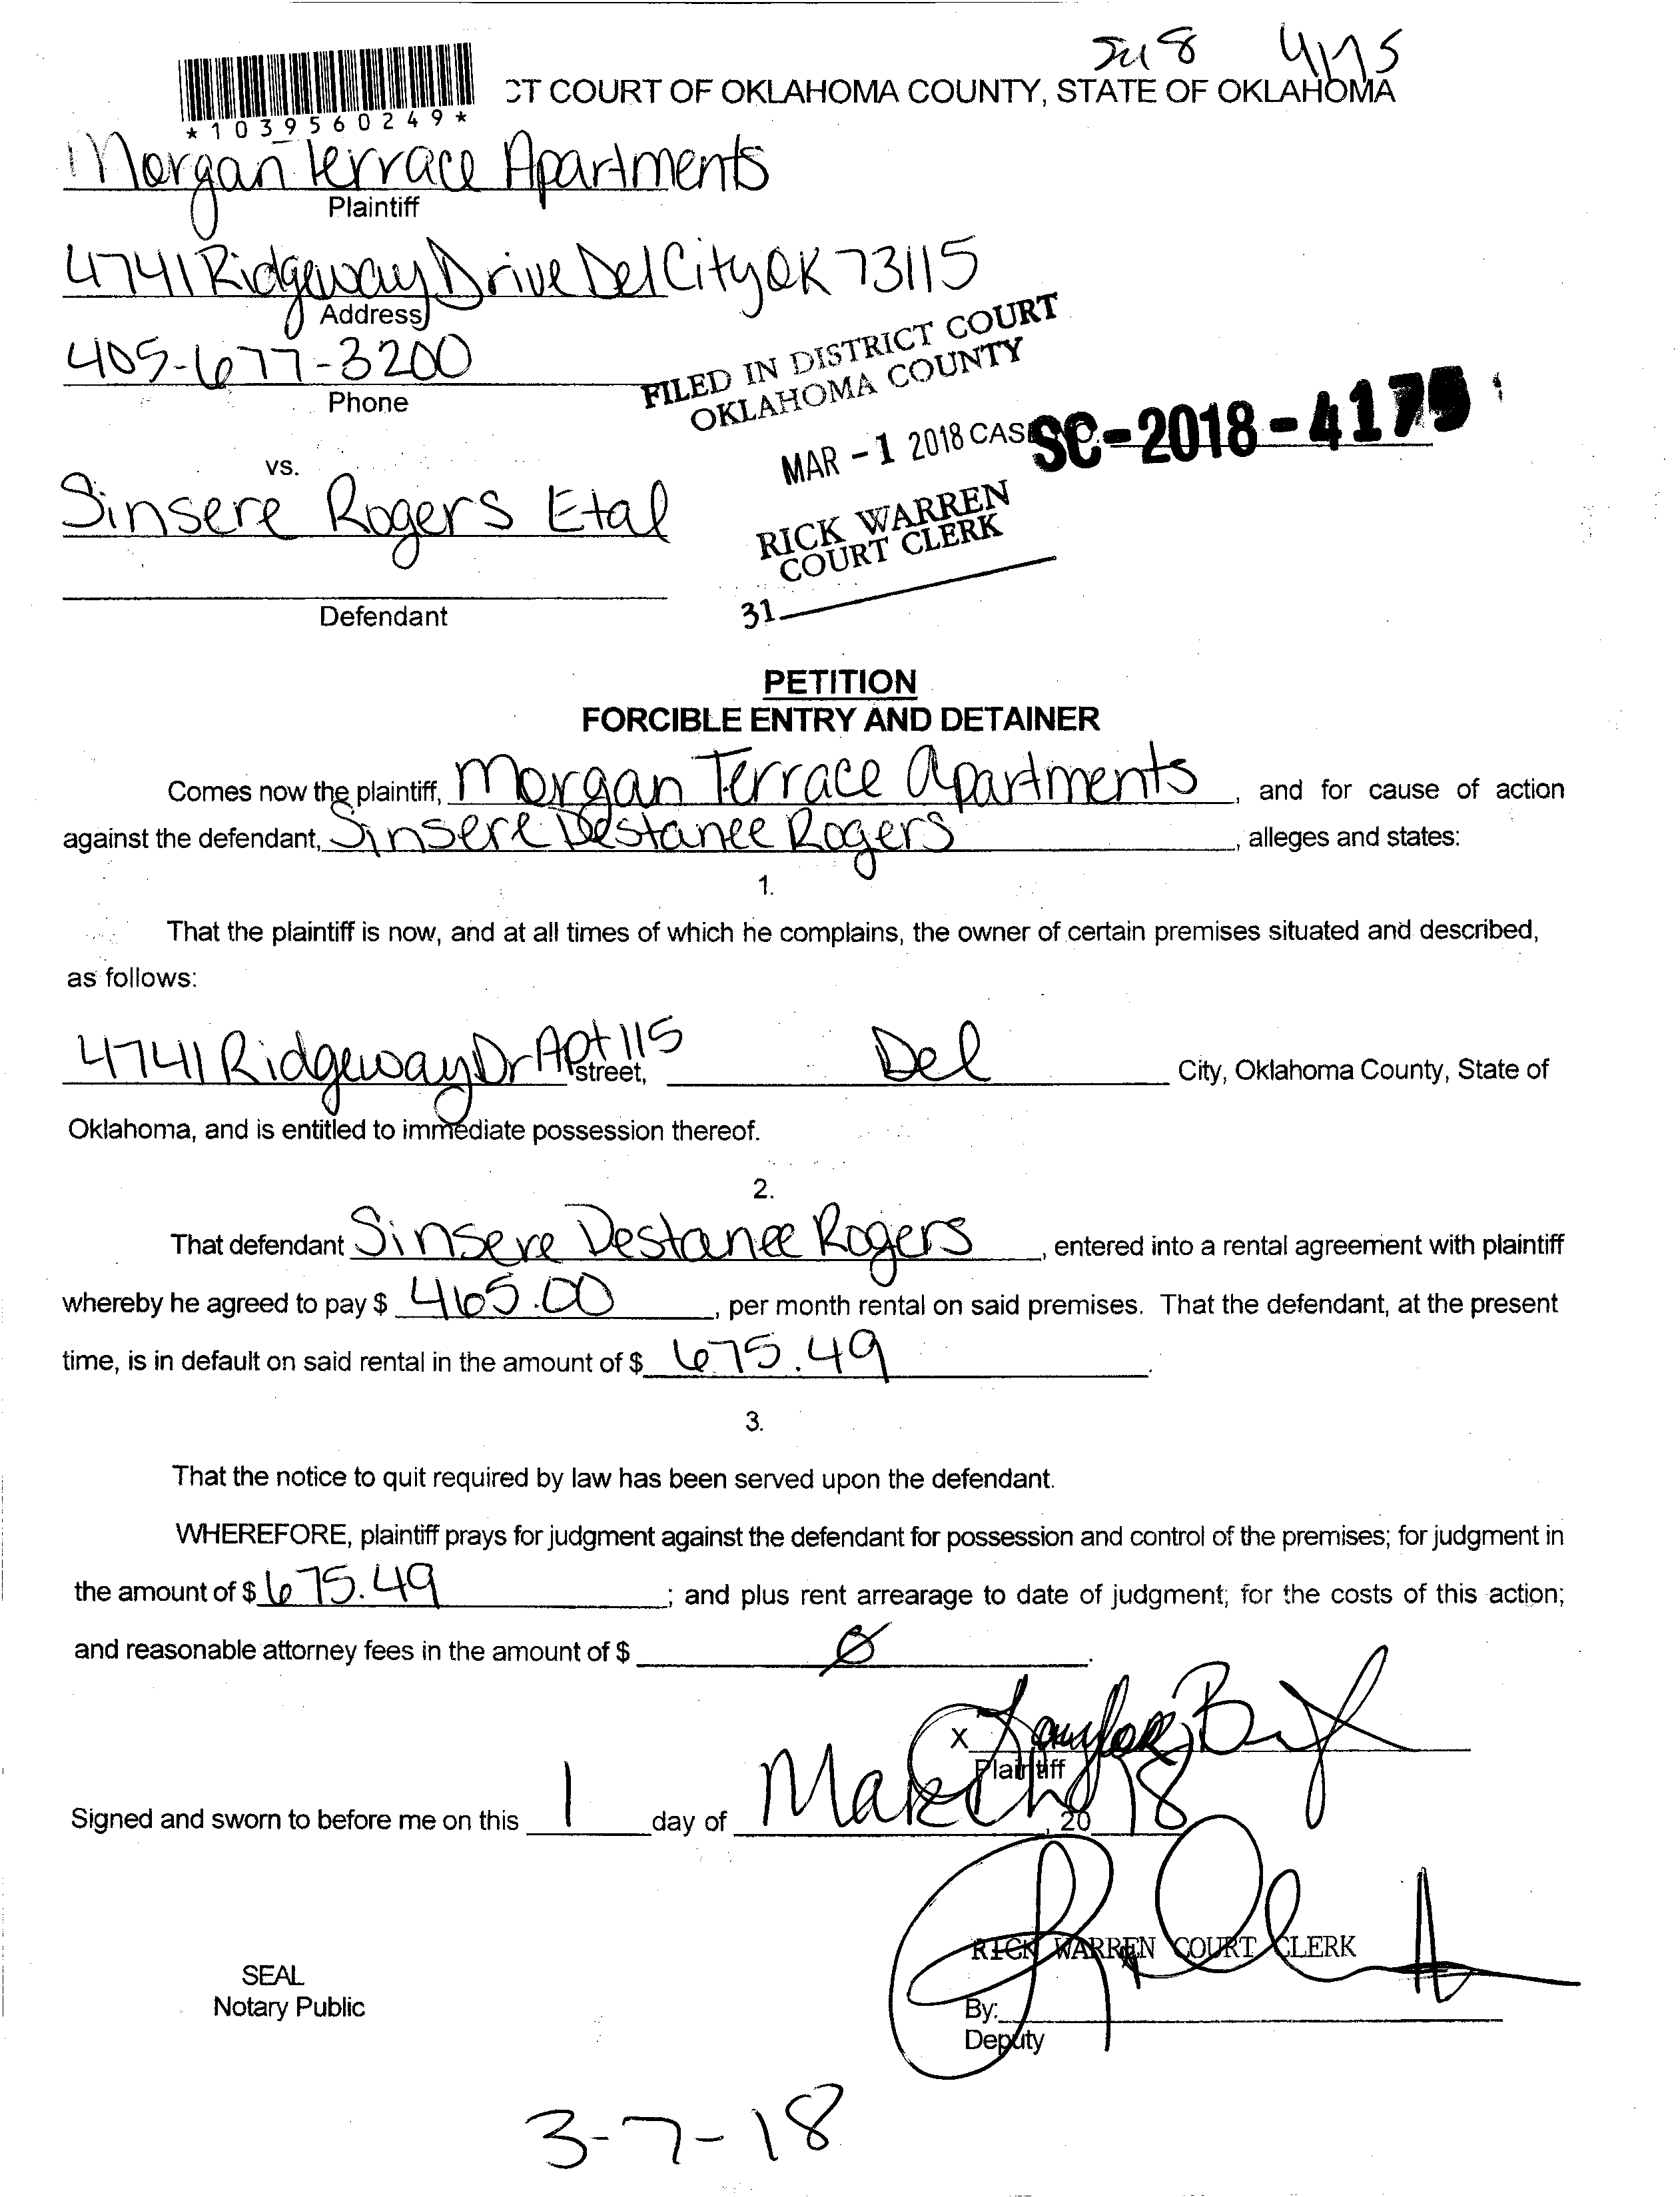 4175
CT COURT OF OKLAHOMA COUNTY, STATE OF OKLAHOMA
*1039560249*
Morgan Terrace Apartments
Plaintiff
4741 Ridgeway Drive Del City OK 73115
Address
405-677-3200
Phone
FILED IN DISTRICT COURT
OKLAHOMA COUNTY
MAR -1 2018 CAS SC-2018-4175
vs.
Sinsere Rogers Etal
RICK WARREN
COURT CLERK
31
Defendant
PETITION
FORCIBLE ENTRY AND DETAINER
Comes now the plaintiff, Morgan Terrace Apartments, and for cause of action
against the defendant, Sinsere Destanee Rogers, alleges and states:
1.
That the plaintiff is now, and at all times of which he complains, the owner of certain premises situated and described,
as follows:
4741 Ridgeway Dr Apt 115 street, Del City, Oklahoma County, State of
Oklahoma, and is entitled to immediate possession thereof.
2.
That defendant Sinsere Destanee Rogers, entered into a rental agreement with plaintiff
whereby he agreed to pay $ 465.00, per month rental on said premises. That the defendant, at the present
time, is in default on said rental in the amount of $ 675.49.
3.
That the notice to quit required by law has been served upon the defendant.
WHEREFORE, plaintiff prays for judgment against the defendant for possession and control of the premises; for judgment in
the amount of $ 675.49; and plus rent arrearage to date of judgment; for the costs of this action;
and reasonable attorney fees in the amount of $ 0.
X
Plaintiff
Signed and sworn to before me on this 1 day of March, 20 18
RICK WARREN COURT CLERK
SEAL
Notary Public
By:
Deputy
3-7-18